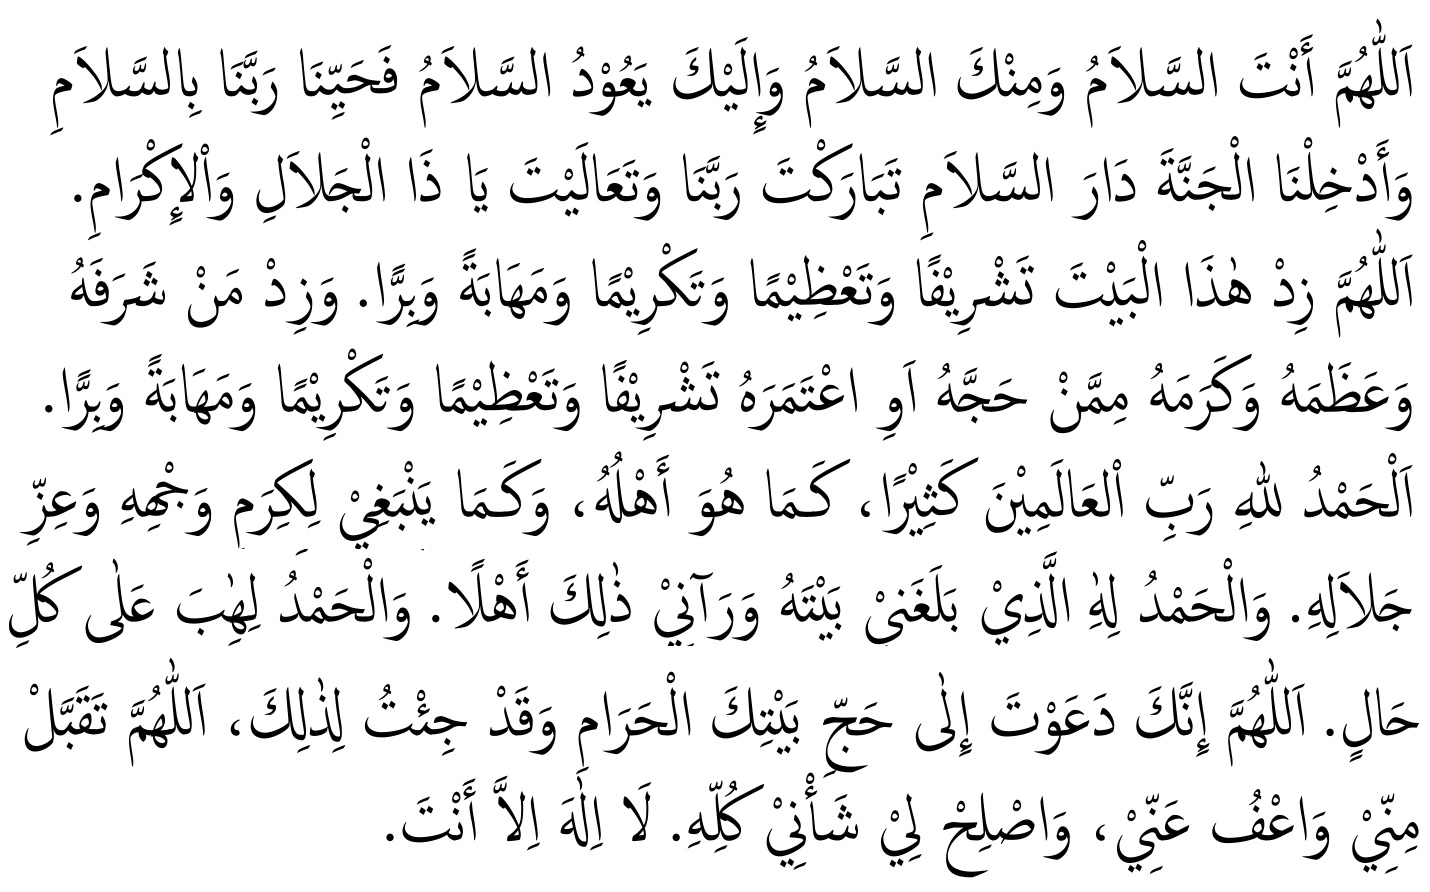 اَللّٰهُمَّ أَنْتَ السَّلاَمُ وَمِنْكَ السَّلاَمُ وَإِلَيْكَ يَعُوْدُ السَّلاَمُ فَحَيِّنَا رَبَّنَا بِالسَّلاَمِ
وَأَدْخِلْنَا الْجَنَّةَ دَارَ السَّلاَمِ تَبَارَكْتَ رَبَّنَا وَتَعَالَيْتَ يَا ذَا الْجَلاَلِ وَاْلإِكْرَامِ.
اَللّٰهُمَّ زِدْ هٰذَا الْبَيْتَ تَشْرِيْفًا وَتَعْظِيْمًا وَتَكْرِيْمًا وَمَهَابَةً وَبِرًّا. وَزِدْ مَنْ شَرَفَهُ
وَعَظَمَهُ وَكَرَمَهُ مِمَّنْ حَجَّهُ اَوِ اعْتَمَرَهُ تَشْرِيْفًا وَتَعْظِيْمًا وَتَكْرِيْمًا وَمَهَابَةً وَبِرًّا.
اَلْحَمْدُ لِلّٰهِ رَبِّ اْلعَالَمِيْنَ كَثِيْرًا، كَمَا هُوَ أَهْلُهُ، وَكَمَا يَنْبَغِيْ لِكِرَمِ وَجْهِهِ وَعِزِّ
جَلاَلِهِ. وَالْحَمْدُ لِلّٰهِ الَّذِيْ بَلَغَنِيْ بَيْتَهُ وَرَآنِيْ ذٰلِكَ أَهْلًا. وَالْحَمْدُ لِهِٰبَ عَلٰى كُلِّ
حَالٍ. اَللّٰهُمَّ إِنَّكَ دَعَوْتَ إِلٰى حَجِّ بَيْتِكَ الْحَرَامِ وَقَدْ جِئْتُ لِذٰلِكَ، اَللّٰهُمَّ تَقَبَّلْ
مِنِّيْ وَاعْفُ عَنِّيْ، وَاصْلِحْ لِيْ شَأْنِيْ كُلِّهِ. لَا اِلٰهَ اِلاَّ أَنْتَ.